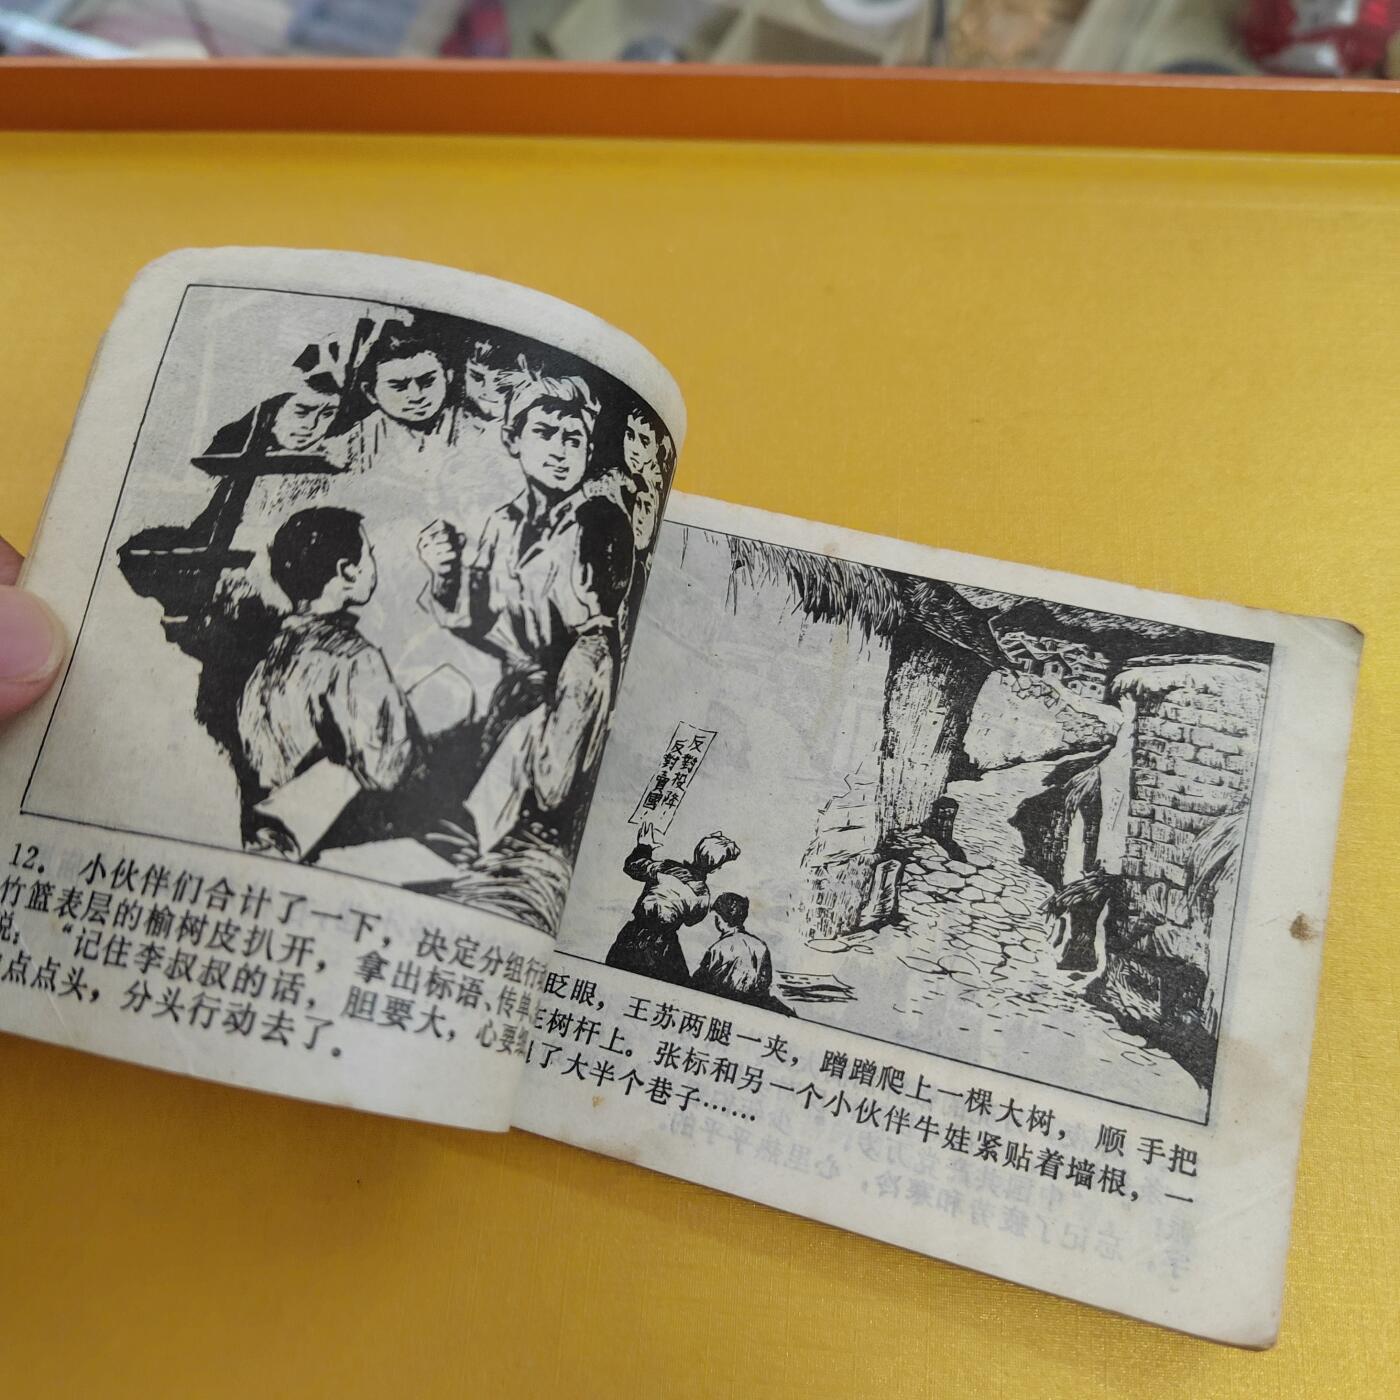 12. 小伙伴们合计了一下，决定分组行动
竹篮表层的榆树皮扒开，拿出标语、传单
说："记住李叔叔的话，胆要大，心要细
点点头，分头行动去了。
反對投降
反對賣國
眨眼，王苏两腿一夹，蹭蹭爬上一棵大树，顺手把
在树杆上。张标和另一个小伙伴牛娃紧贴着墙根，一
了大半个巷子……